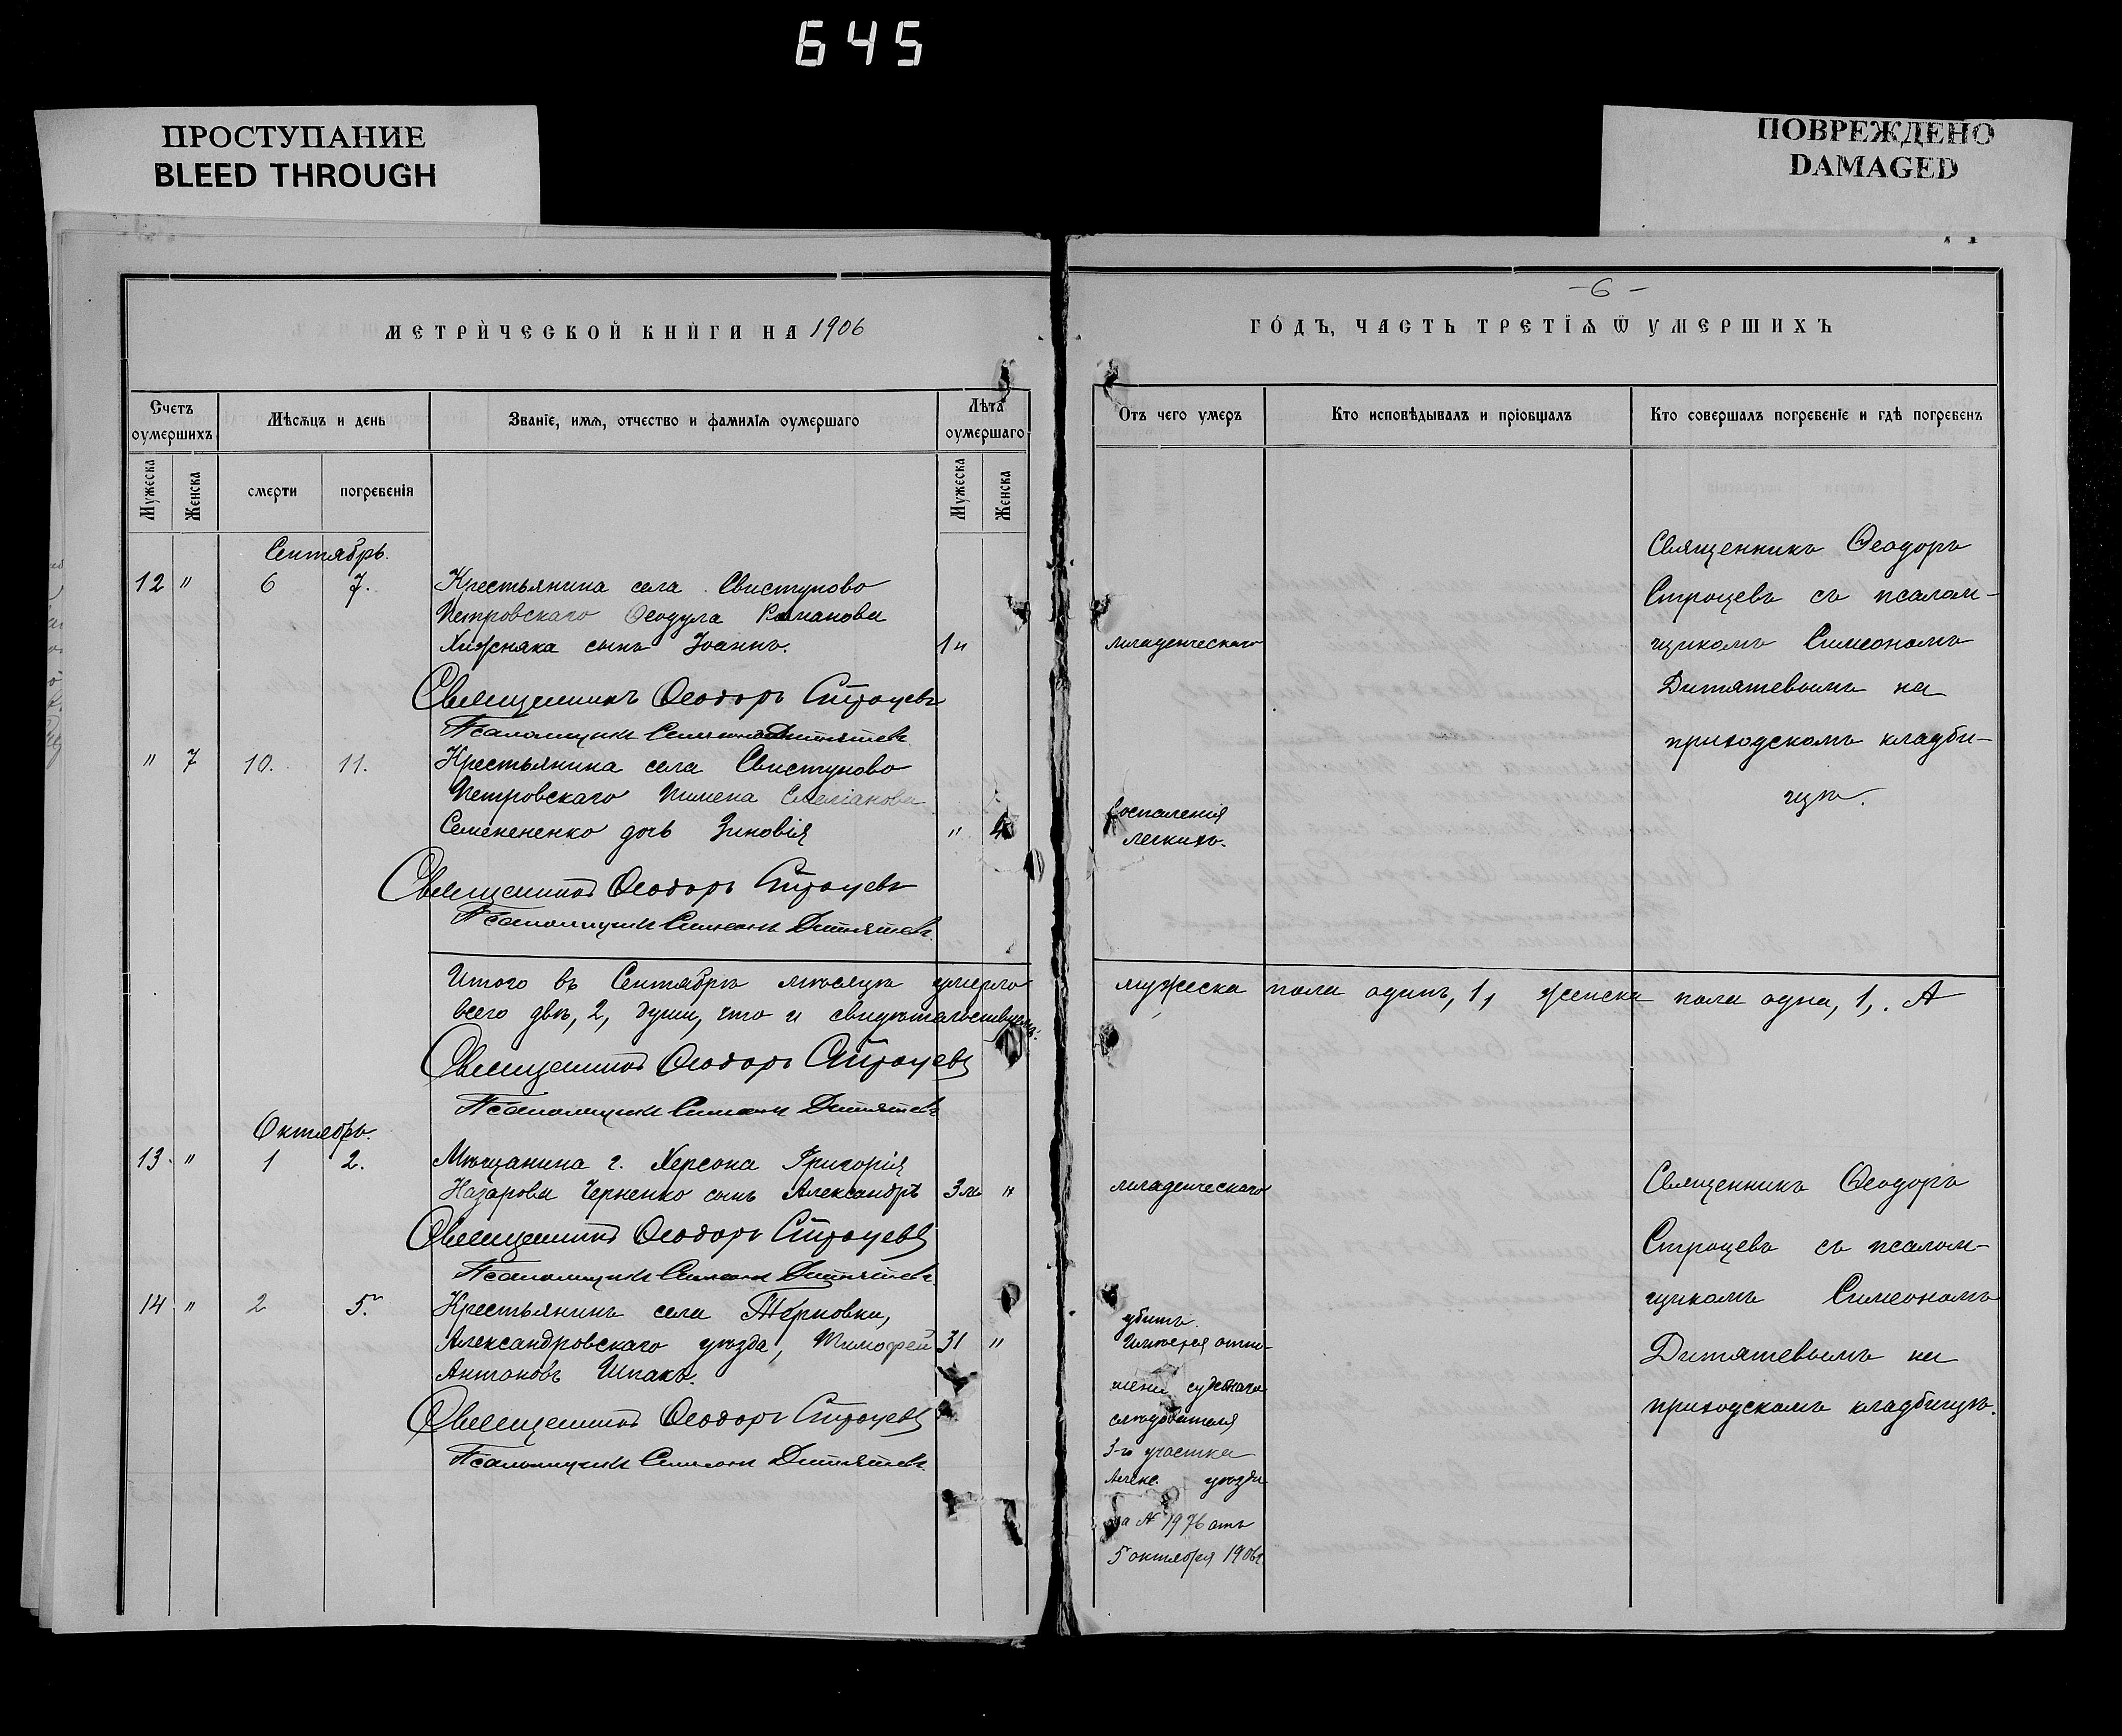 645
ПРОСТУПАНИЕ
BLEED THROUGH
ПОВРЕЖДЕНО
DAMAGED
МЕТРИ́ЧЕСКОЙ КНИ́ГИ НА 1906
Счетъ оумершихъ
Мѣсѧцъ и день
Званїе, имѧ, отчество и фамилїѧ оумершаго
Лѣта оумершаго
Мужеска
Женска
смерти
погребенїя
Мужеска
Женска
Сентябрь.
12 " 6 7. Крестьянина села Свистуново
Петровскаго Ѳеодула Романова
Хижняка сынъ Іоаннъ. 1
Священникъ Ѳеодоръ Строцевъ
Псаломщикъ Симеонъ Дитятевъ
" 7 10. 11. Крестьянина села Свистуново
Петровскаго Пимена Емеліанова
Семененко дочь Зиновія " 4
Священникъ Ѳеодоръ Строцевъ
Псаломщикъ Симеонъ Дитятевъ
Итого въ Сентябрѣ мѣсяцѣ умерло
всего двѣ, 2, души, что и свидѣтельствуемъ:
Священникъ Ѳеодоръ Строцевъ
Псаломщикъ Симеонъ Дитятевъ
Октябрь.
13. " 1 2. Мѣщанина г. Херсона Григорія
Назарова Черненко сынъ Александръ 3 м "
Священникъ Ѳеодоръ Строцевъ
Псаломщикъ Симеонъ Дитятевъ
14 " 2 5. Крестьянинъ села Терновки,
Александровскаго уѣзда, Тимофей 31 "
Антоновъ Шпакъ.
Священникъ Ѳеодоръ Строцевъ
Псаломщикъ Симеонъ Дитятевъ
-6-
ГО́ДЪ, ЧАСТЬ ТРЕТЇѦ Ѿ УМЕРШИХЪ
Отъ чего умеръ
Кто исповѣдывалъ и прїобщалъ
Кто совершалъ погребенїе и гдѣ погребенъ
младенческаго
воспаленія
легкихъ.
Священникъ Ѳеодоръ
Строцевъ съ псалом-
щикомъ Симеономъ
Дитятевымъ на
приходскомъ кладби-
щѣ.
мужеска пола одинъ, 1, женска пола одна, 1, . А
младенческаго
убитъ.
Имѣется отно-
шеніе судебнаго
слѣдователя
3-го участка
Алекс. уѣзда
за № 1976 отъ
5 октября 1906 г
Священникъ Ѳеодоръ
Строцевъ съ псалом-
щикомъ Симеономъ
Дитятевымъ на
приходскомъ кладбищѣ.